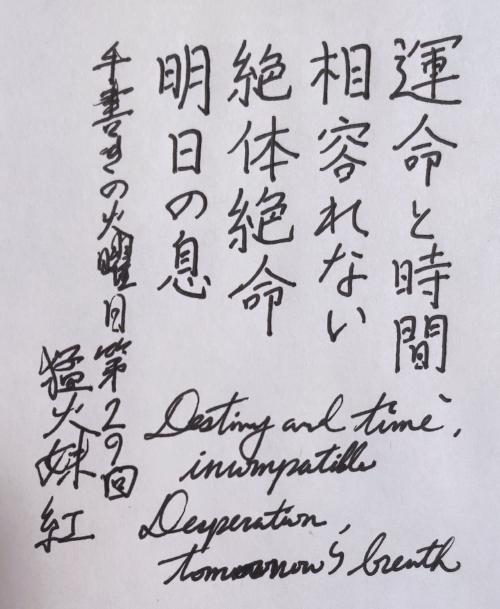 運命と時間
相容れない
絶体絶命
明日の息
手書きの火曜日第29回
猛火妹紅
Destiny and time,
incompatible
Desperation,
tomorrow's breath